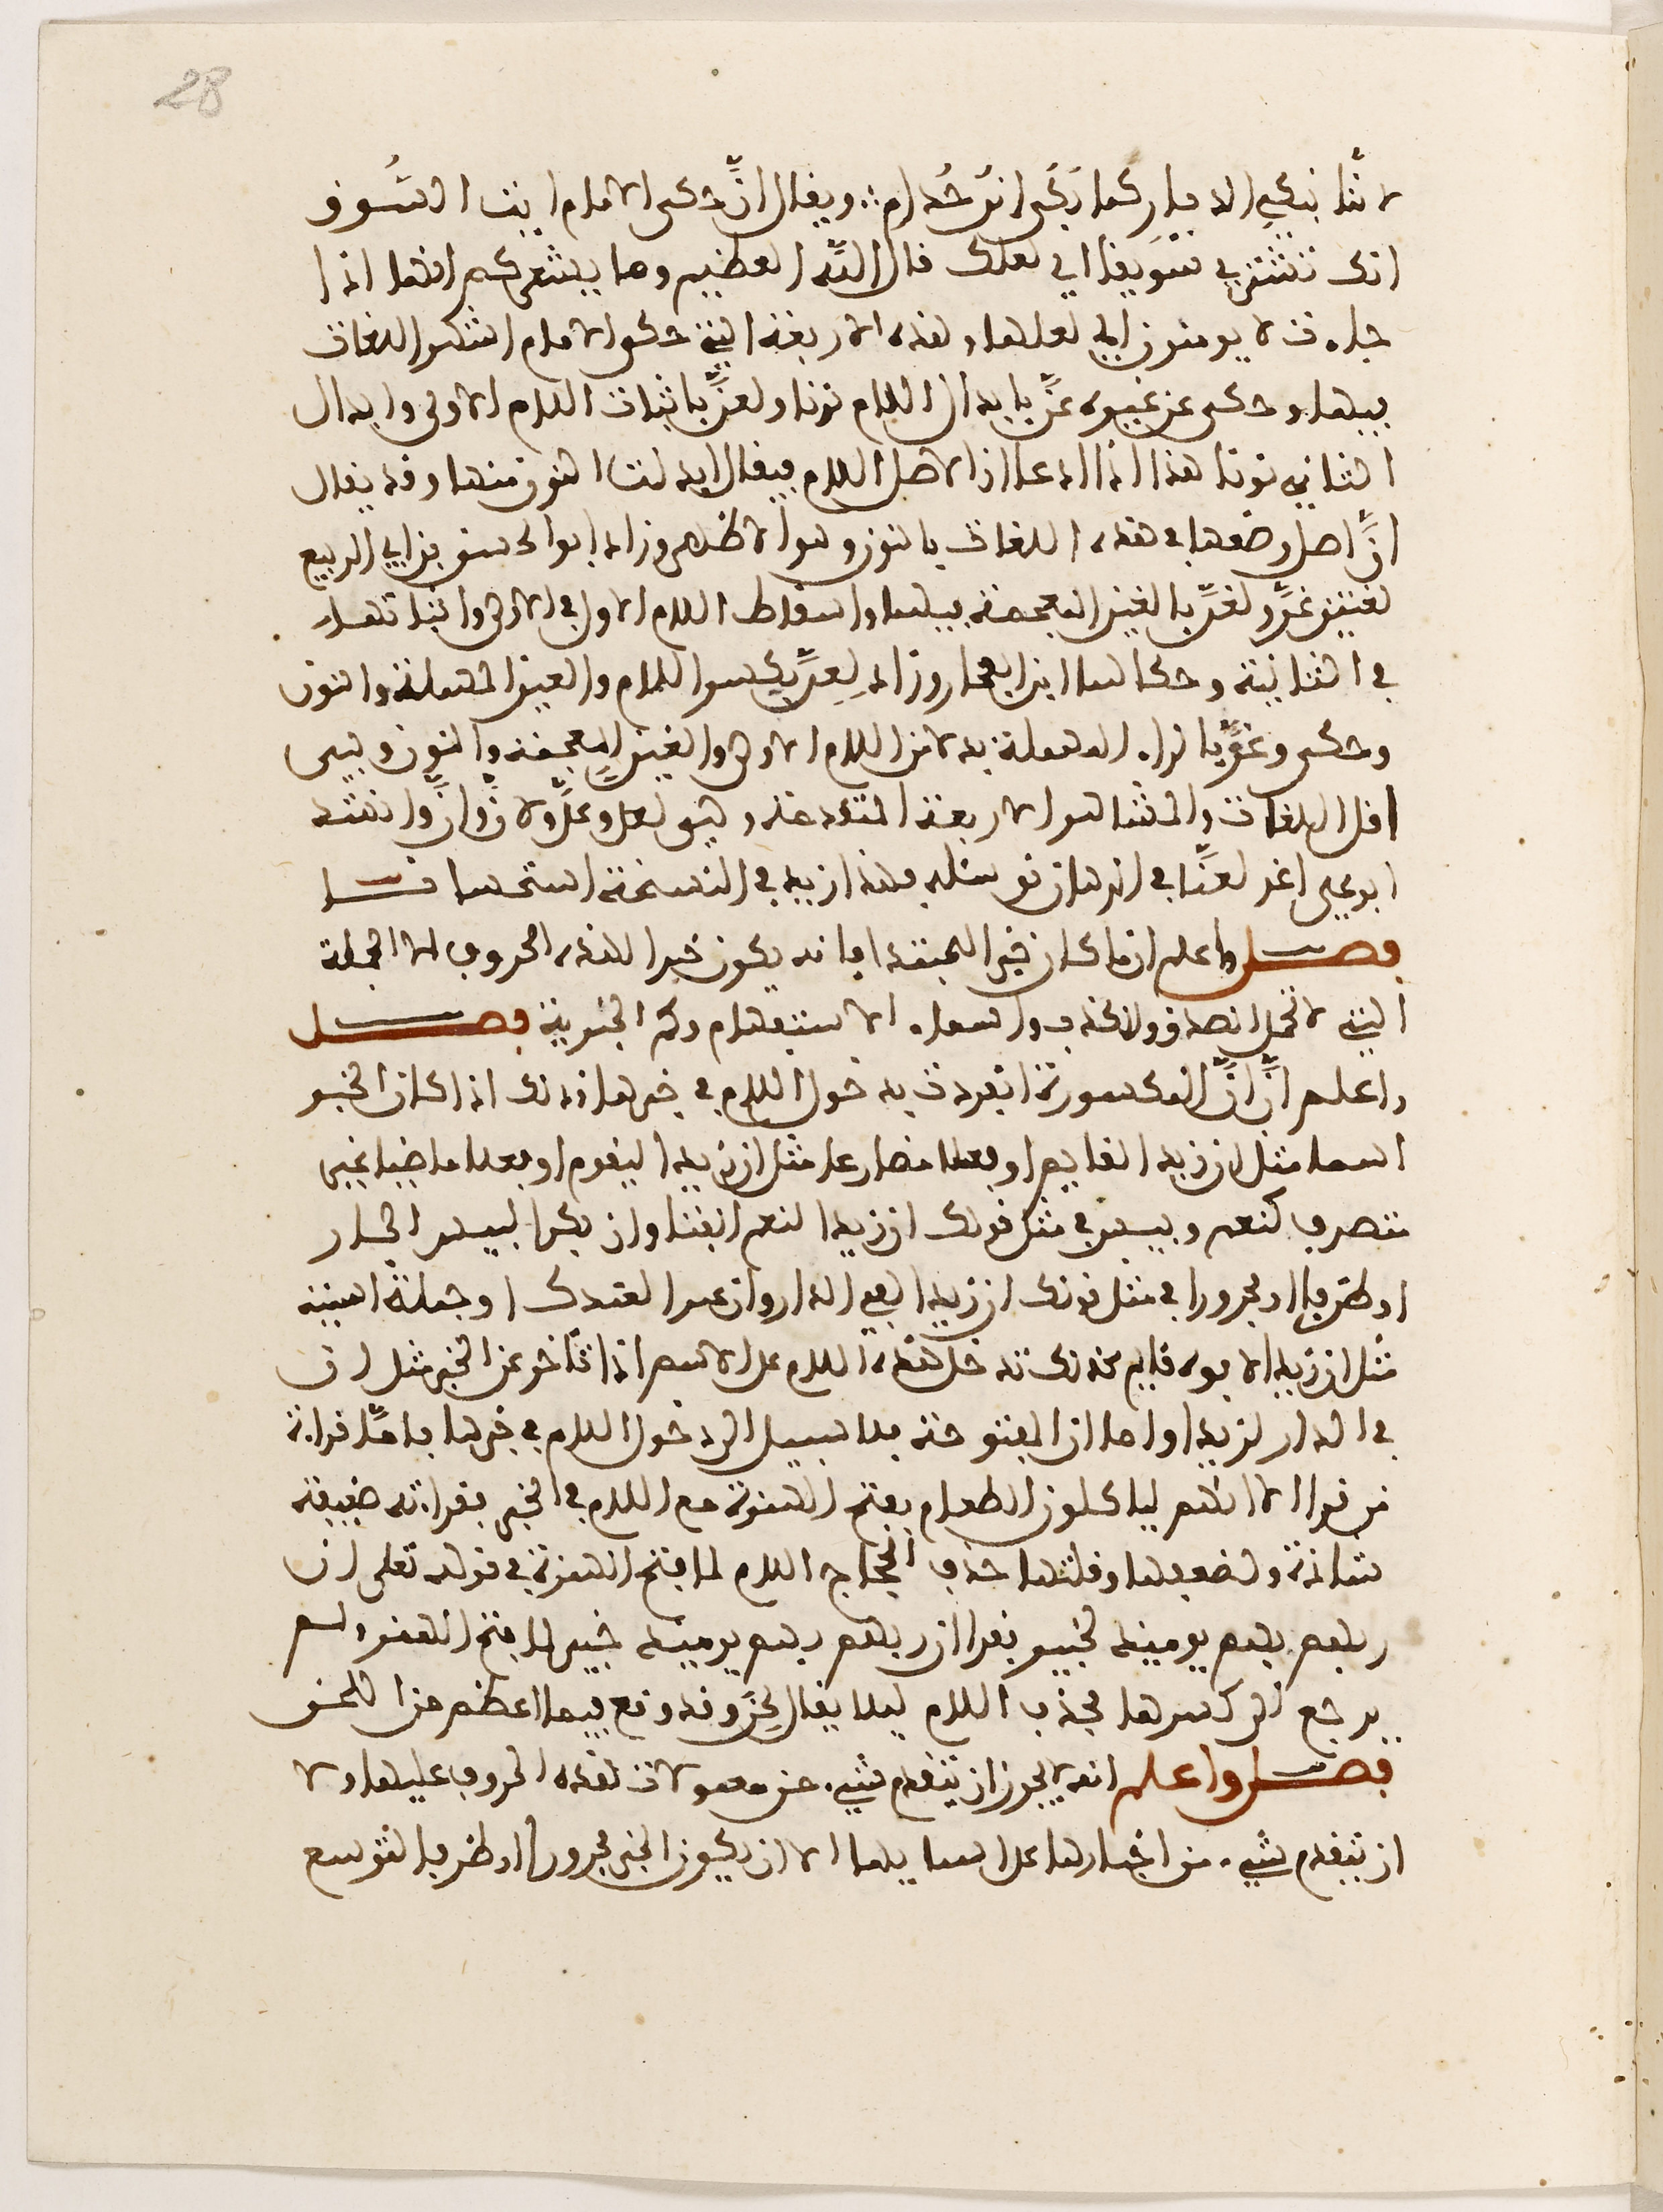 28
لأنّا نبكي الديار كما بكى ابن حُذام ∴ ويقال أنّ حكى الامام ايت السُّوق
انك تشتري سَويقا اي لعلك قال اللّه العظيم وما يشعركم انها اذا
جاءت لا يومنون اي لعلها وهذه الاربعة التي حكى الامام اشهر اللغات
فيها وحكى عن غيره عنَّ بابدال اللام نونا ولعنَّ باثبات اللام الاولى وابدال
الثاني نونا هذا اذا ادعا ان الاصل اللام فيقال ابدلت النون منها وقد يقال
انَّ اصل وضعها في هذه اللغات بالنون وهو الاظهر وزاد ابو الحسين بن ابي الربيع
لغتين غنَّ ولغنَّ بالغين المعجمة فيهما واسقاط اللام الاول في الاولى واثباتها
في الثانية وحكاهما ابن الفخار وزاد لِعِنَّ بكسر اللام والعين المهملة والنون
وحكى رغنَّ بالراء المهملة بدلا من اللام الاولى والغين المعجمة والنون وهي
اقل اللغات والمشاهير الاربعة المتقدمة وهي لعل وعلَّ ولأنَّ وانَّ وانشد
ابو علي اغد لعنّا في الرهان نرسله وهذا زيد في النسخة استحسانا
فصل واعلم ان ما كان خبرا للمبتدا فانه يكون خبرا لهذه الحروف الا الجملة
التي لا تحمل الصدق ولا الكذب واسماء الاستفهام وكم الخبرية فصل
واعلم انَّ انَّ المكسورة انفردت بدخول اللام في خبرها وذلك اذا كان الخبر
اسما مثل ان زيدا لقايم او فعلا مضارعا مثل ان زيدا ليقوم او فعلا ماضيا غير
متصرف كنعم وبيس في مثل قولك ان زيدا لنعم الفتا وان بكرا لبيس الجار
او ظرفا او مجرورا في مثل قولك ان زيدا لفي الدار وان عمرا لعندك او جملة اسمية
مثل ان زيدا لابوه قايم كذلك تدخل هذه اللام على الاسم اذا تأخر عن الخبر مثل ان
في الدار لزيدا واما ان المفتوحة فلا سبيل الى دخول اللام في خبرها فامّا قراءة
من قرا الا انهم لياكلون الطعام بفتح الهمزة مع اللام في الخبر فقراءته ضعيفة
شاذة ولضعفها وقلتها حذف الحجاج اللام لما فتح الهمزة في قوله تعلى ان
ربهم بهم يوميذ لخبير فقرا ان ربهم بهم يوميذ خبير لما فتح الهمز ولم
يرجع الى كسرها فحذف اللام ليلا يقال لحن وقد وقع فيما اعظم من اللحن
فصل واعلم انه لا يجوز ان يتقدم شيء من معمولات هذه الحروف عليها ولا
ان يتقدم شيء من اخبارها على اسمايها الا ان يكون الخبر مجرورا او ظرفا لتوسع